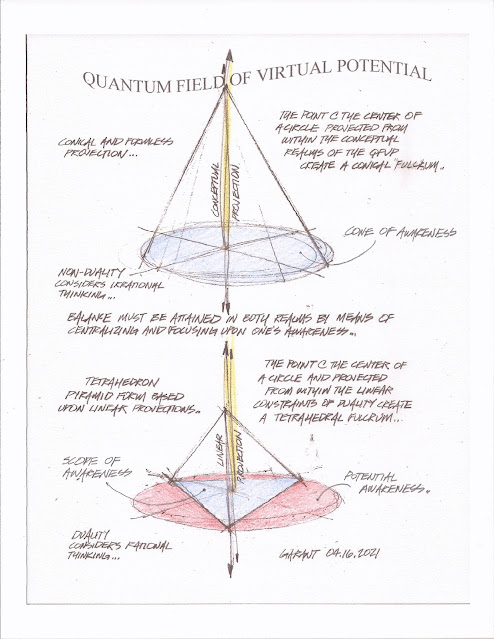 QUANTUM FIELD OF VIRTUAL POTENTIAL
CONICAL AND FORMLESS
PROJECTION...
THE POINT @ THE CENTER OF
A CIRCLE PROJECTED FROM
WITHIN THE CONCEPTUAL
REALMS OF THE QFVP
CREATE A CONICAL FULCRUM..
CONCEPTUAL
PROJECTION
CONE OF AWARENESS
NON-DUALITY
CONSIDERS IRRATIONAL
THINKING...
BALANCE MUST BE ATTAINED IN BOTH REALMS BY MEANS OF
CENTRALIZING AND FOCUSING UPON ONE'S AWARENESS...
TETRAHEDRON
PYRAMID FORM BASED
UPON LINEAR PROJECTIONS..
THE POINT @ THE CENTER OF
A CIRCLE AND PROJECTED
FROM WITHIN THE LINEAR
CONSTRAINTS OF DUALITY CREATE
A TETRAHEDRAL FULCRUM...
LINEAR
PROJECTION
SCOPE OF
AWARENESS
POTENTIAL
AWARENESS..
DUALITY
CONSIDERS RATIONAL
THINKING...
GARANT 04.16.2021